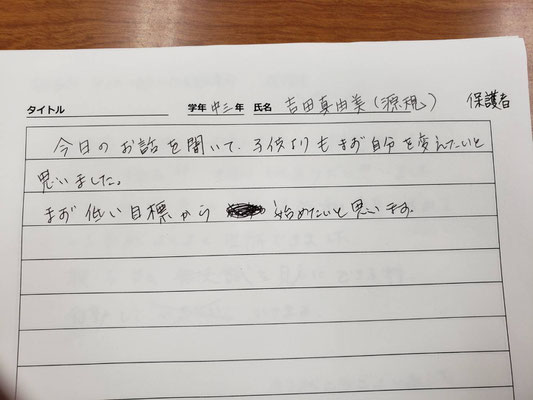 タイトル 学年 中三年 氏名 吉田真由美(源規) 保護者
今日のお話を聞いて、子供よりもまず自分を変えたいと
思いました。
まず低い目標から 始めたいと思います。